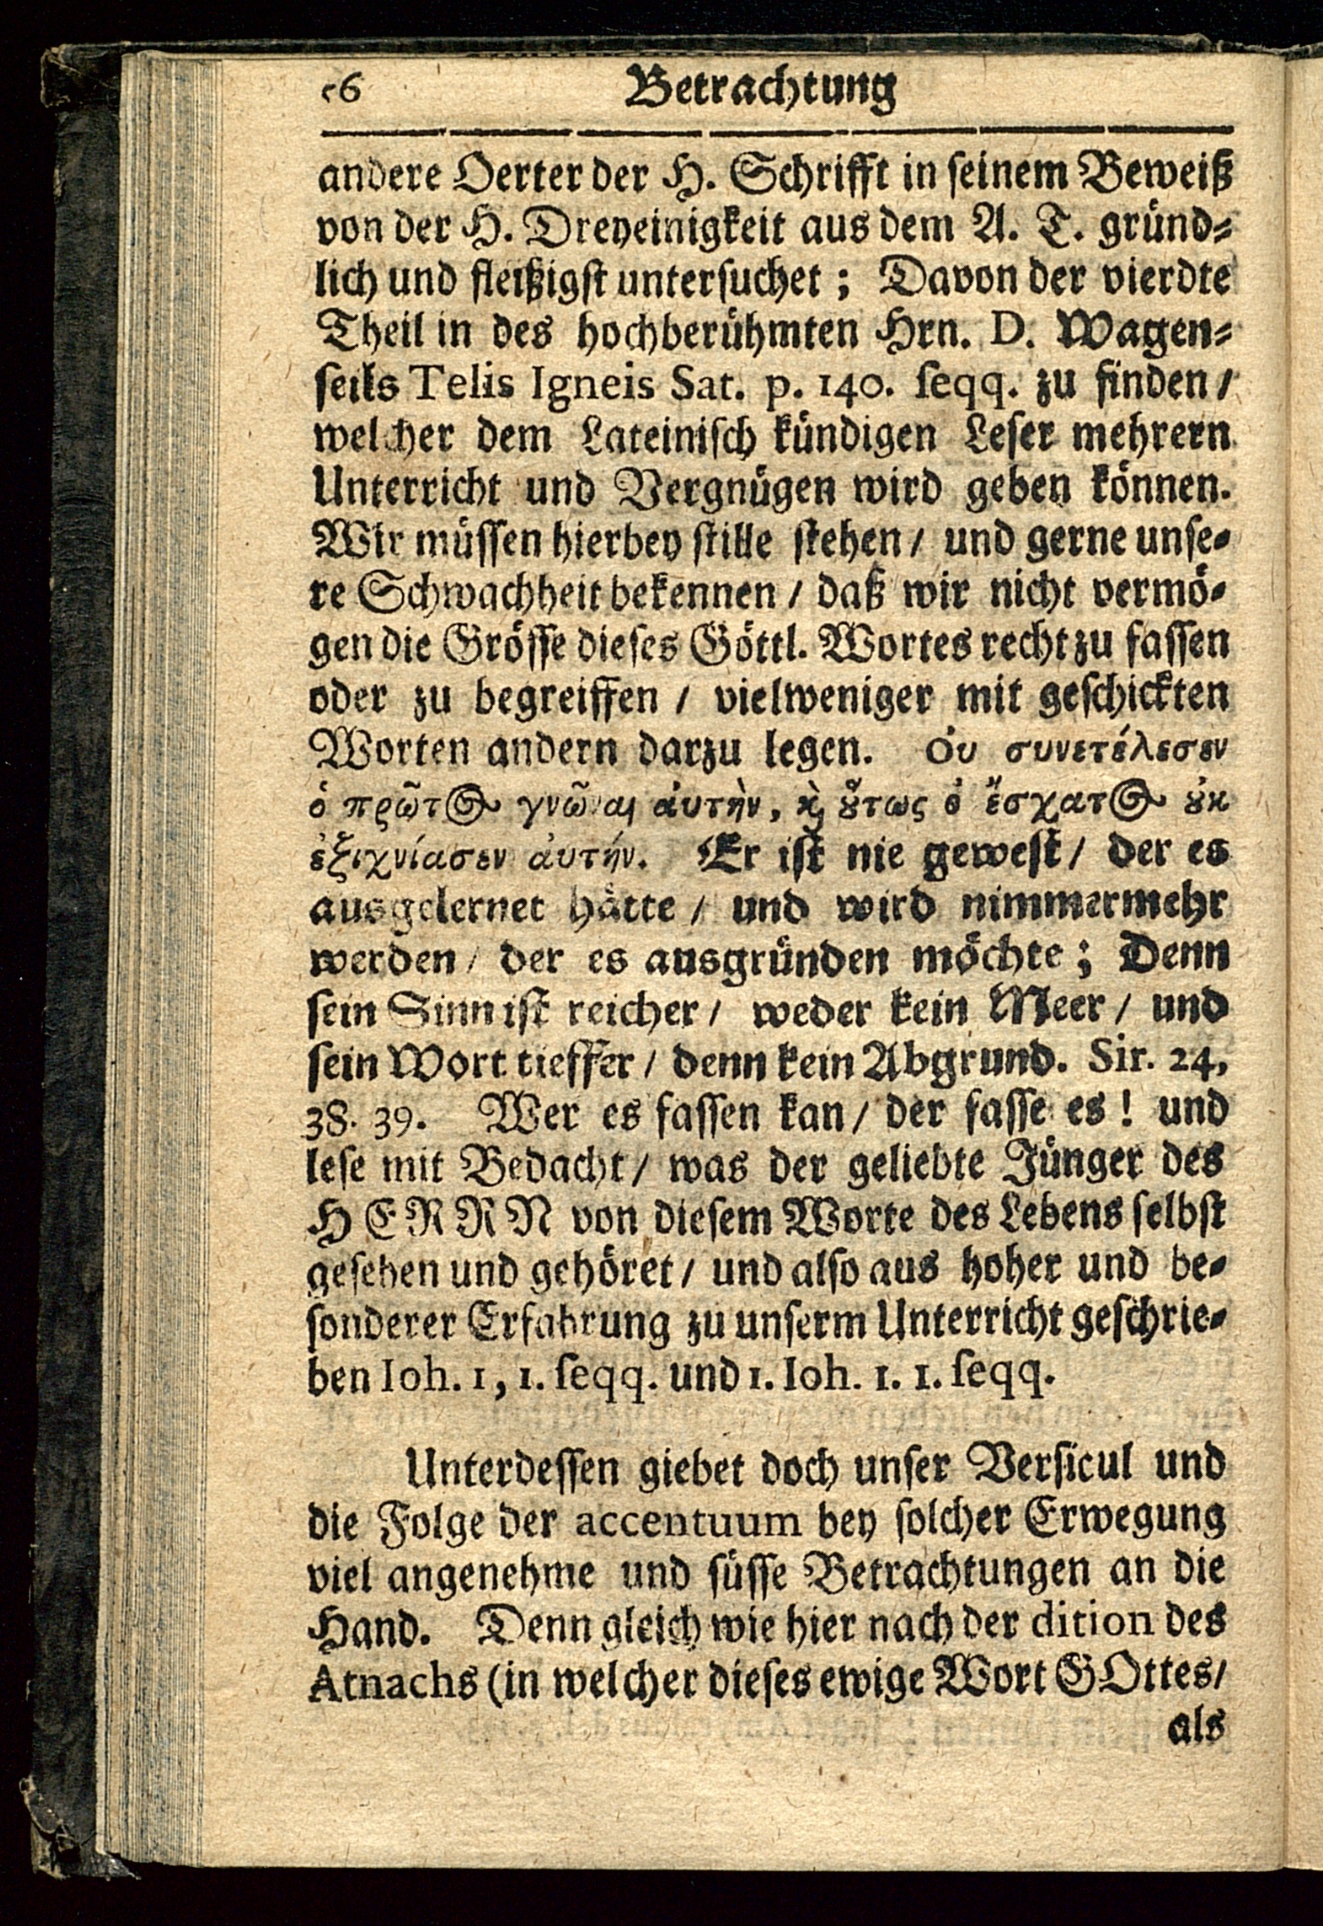 56 Betrachtung
andere Oerter der H. Schrifft in seinem Beweiß
von der H. Dreyeinigkeit aus dem A. T. gründ-
lich und fleißigst untersuchet; Davon der vierdte
Theil in des hochberühmten Hrn. D. Wagen-
seils Telis Igneis Sat. p. 140. seqq. zu finden/
welcher dem Lateinisch kündigen Leser mehrern
Unterricht und Vergnügen wird geben können.
Wir müssen hierbey stille stehen/ und gerne unse-
re Schwachheit bekennen/ daß wir nicht vermö-
gen die Grösse dieses Göttl. Wortes recht zu fassen
oder zu begreiffen/ vielweniger mit geschickten
Worten andern darzu legen. Οὐ συνετέλεσεν
ὁ πρῶτ⊙ γνῶναι ἀυτὴν, ϗ̀ ȣ̓́τως ὁ ἔσχατ⊙ ȣ̓κ
ἐξιχνίασεν ἀυτήν. Er ist nie gewest/ der es
ausgelernet hätte/ und wird nimmermehr
werden/ der es ausgründen möchte; Denn
sein Sinn ist reicher/ weder kein Meer/ und
sein Wort tieffer/ denn kein Abgrund. Sir. 24,
38. 39. Wer es fassen kan/ der fasse es! und
lese mit Bedacht/ was der geliebte Jünger des
HERRN von diesem Worte des Lebens selbst
gesehen und gehöret/ und also aus hoher und be-
sonderer Erfahrung zu unserm Unterricht geschrie-
ben Ioh. 1, 1. seqq. und 1. Ioh. 1. 1. seqq.
Unterdessen giebet doch unser Versicul und
die Folge der accentuum bey solcher Erwegung
viel angenehme und süsse Betrachtungen an die
Hand. Denn gleich wie hier nach der dition des
Atnachs (in welcher dieses ewige Wort GOttes/
als